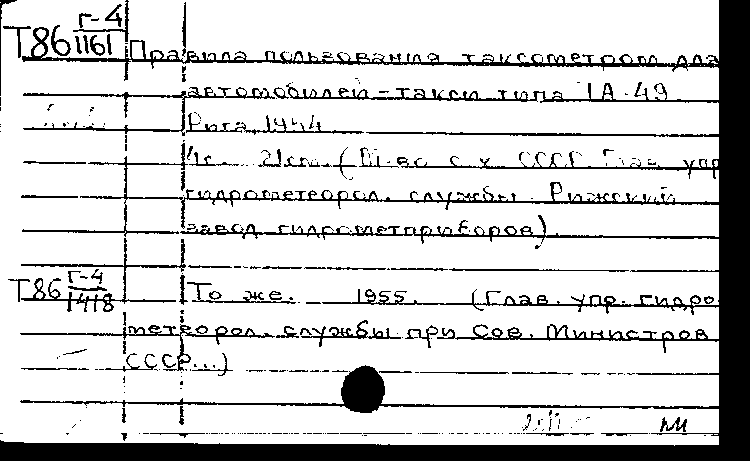 Т86 г-4
1161
Правила пользования таксометром для
автомобилей-такси типа ТА-49
Рига, 1954
4с. 21см. (М-во с х СССР Глав упр
гидрометеорол. службы. Рижский
завод гидрометприборов).
Т86 г-4
1418
То же. 1955. (Глав. упр. гидро-
метеорол. службы при Сов. Министров
СССР...)